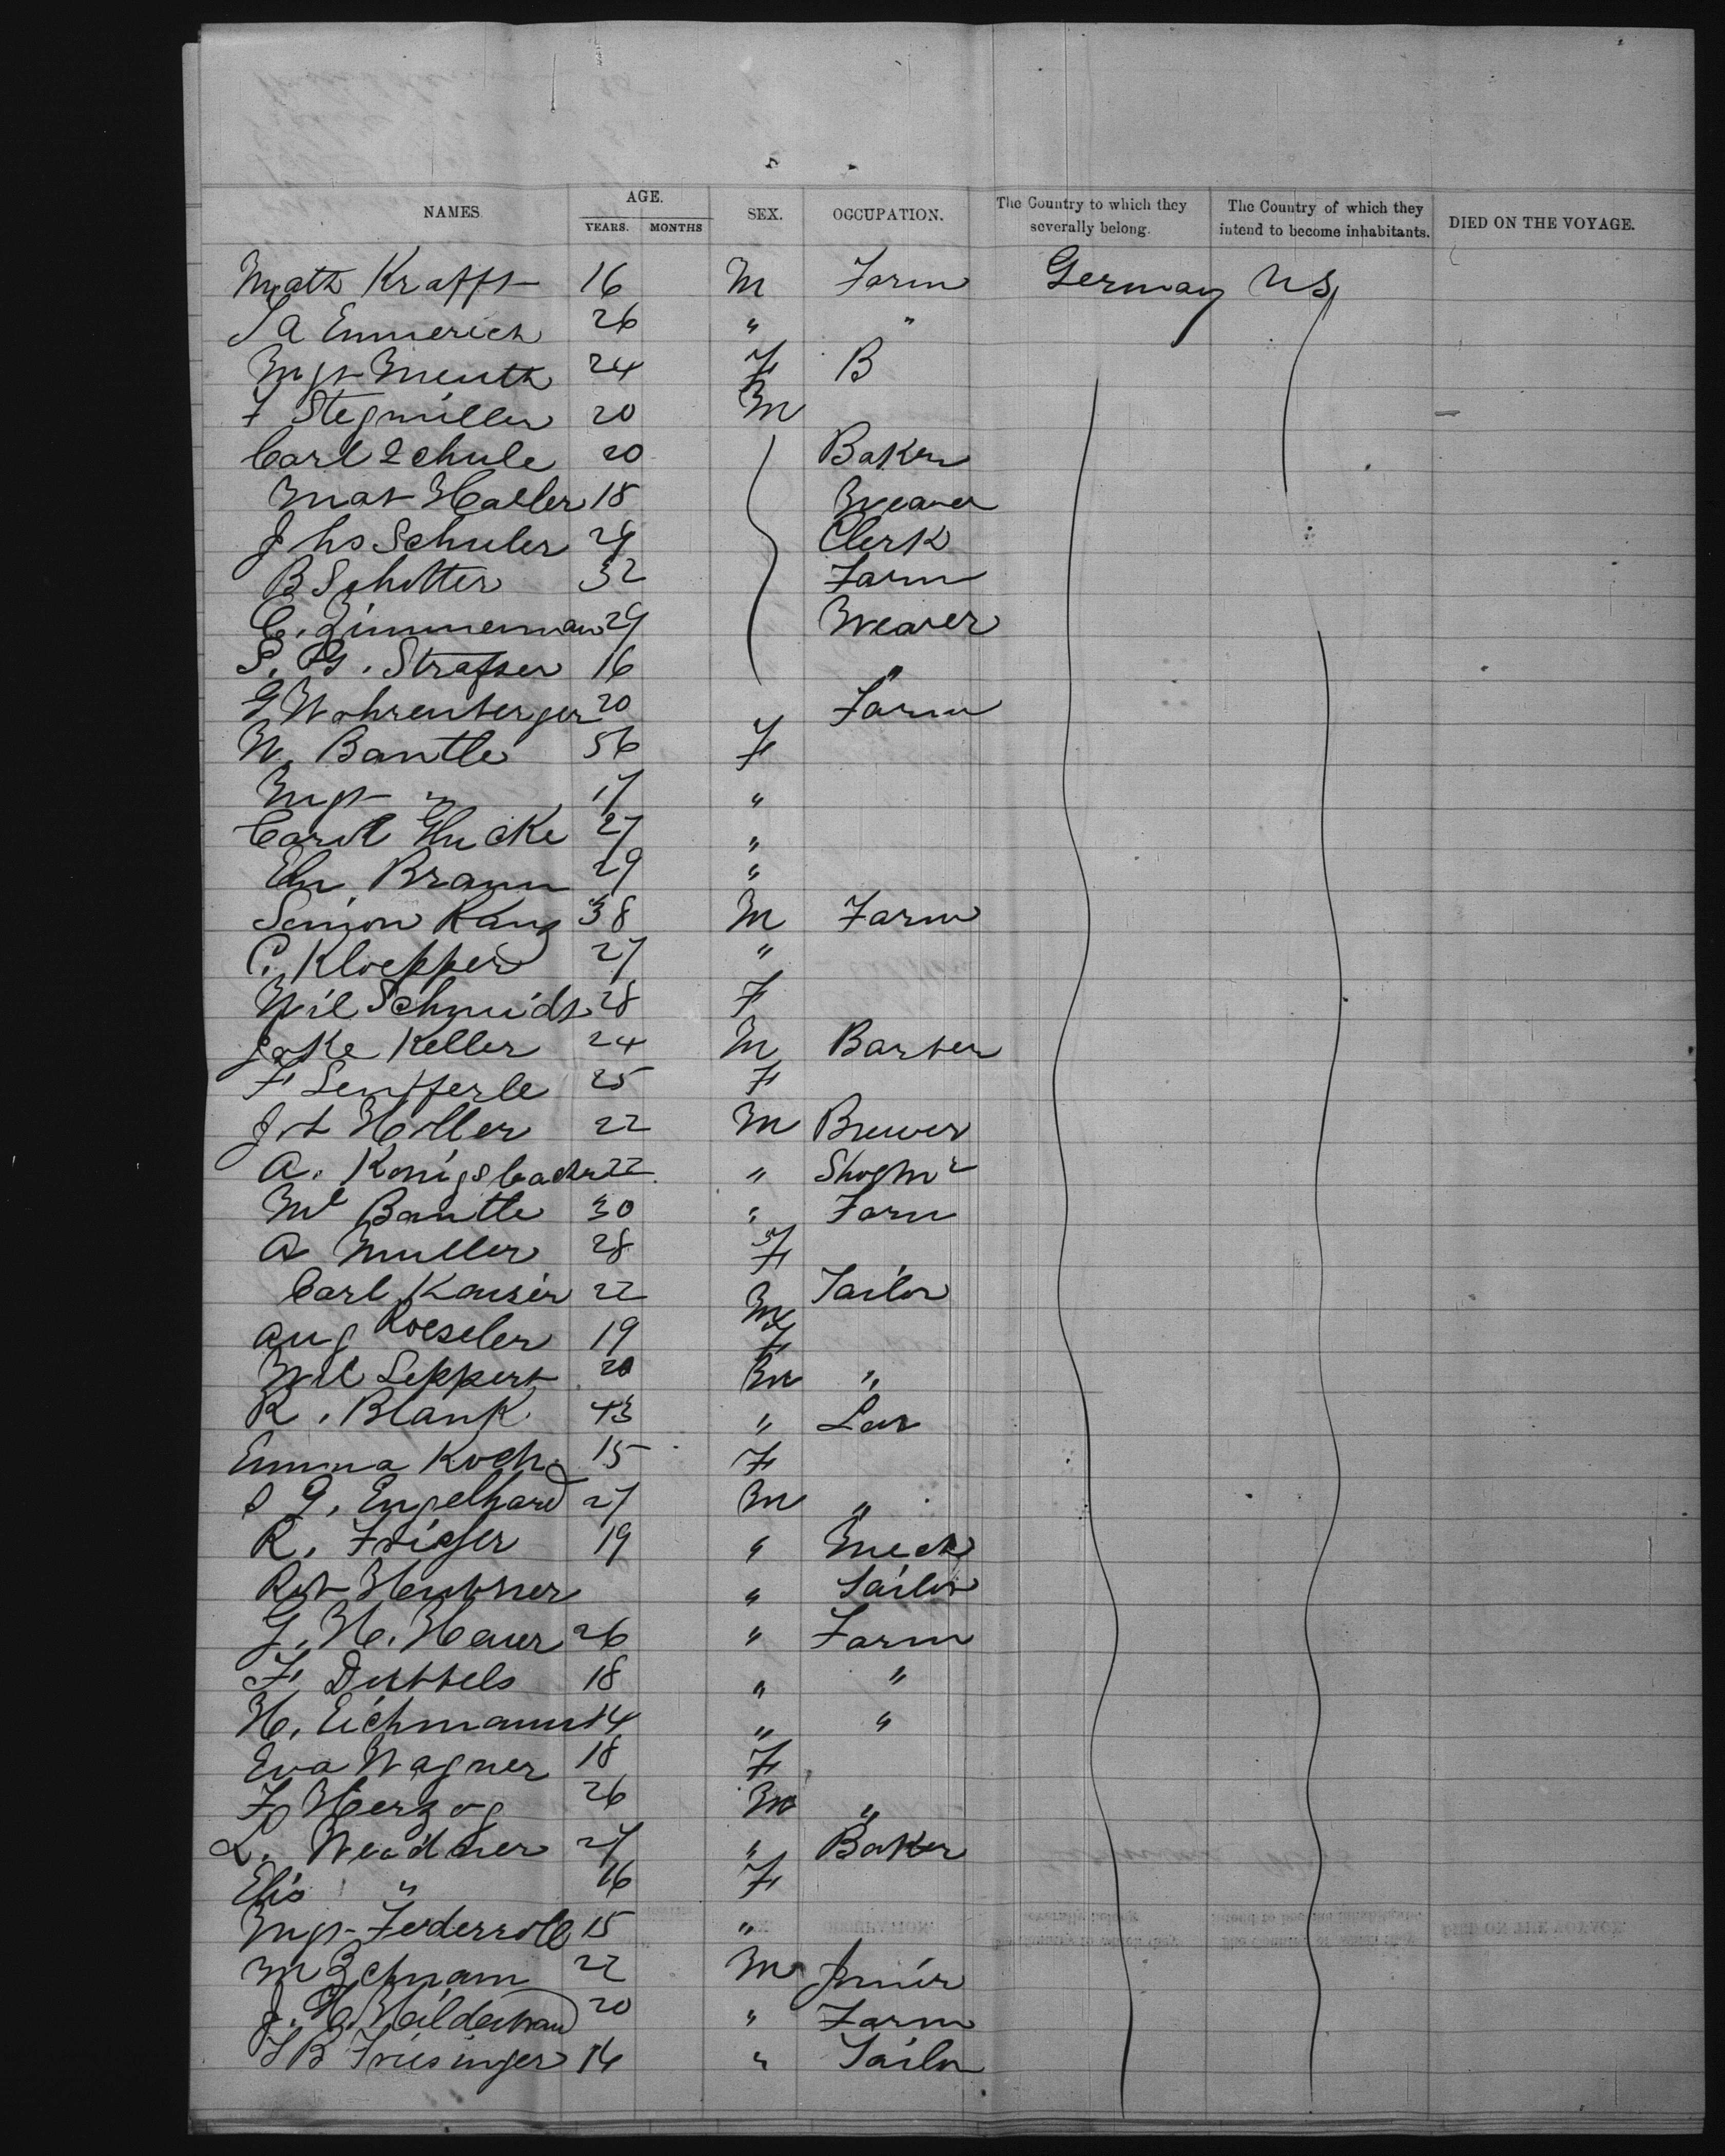 NAMES. AGE. YEARS. MONTHS SEX. OCCUPATION. The Country to which they severally belong. The Country of which they intend to become inhabitants. DIED ON THE VOYAGE.
Math Krafft 16 M Farm Germany US
J A Emmerich 26 " "
Mgt Menth 24 F B
F Stegmüller 20 M
Carl Schule 20 Baker
Mat Haller 18 Weaver
Jhs Schuler 29 Clerk
B Schotter 32 Farm
C. Zimmerman 29 Weaver
P. G. Strasser 16 "
G Wohrenberger 20 Farm
W. Bantle 56 F
Mgt " 17 "
Carol Glucke 27 "
Elis Braun 29 "
Simon Kanz 38 M Farm
C. Kloepper 27 "
Wil Schmidt 28 F
Jake Keller 24 M Barber
F Senfferle 25 F
Jos Holler 22 M Brewer
A. Konigsbacher 22 " Shoemr
Ml Bantle 30 " Farm
A Muller 28 F
Carl Kauser 22 M Tailor
Aug Roeseler 19 F
Wil Leppert 20 M "
R. Blank 43 " Lar
Emma Koch 15 F
S G. Engelhard 27 M "
R. Frieser 19 " Mech
Rob Heubner " Tailor
G. H. Hauer 26 " Farm
F. Dubbels 18 " "
H. Eichmann 14 " "
Eva Wagner 18 F
F Herzog 26 M "
L. Weidner 27 " Baker
Elis " 16 F
Mgt Federroll 15 "
M 22 M
J. 20 " Farm
J B Friesinger 14 " Tailor